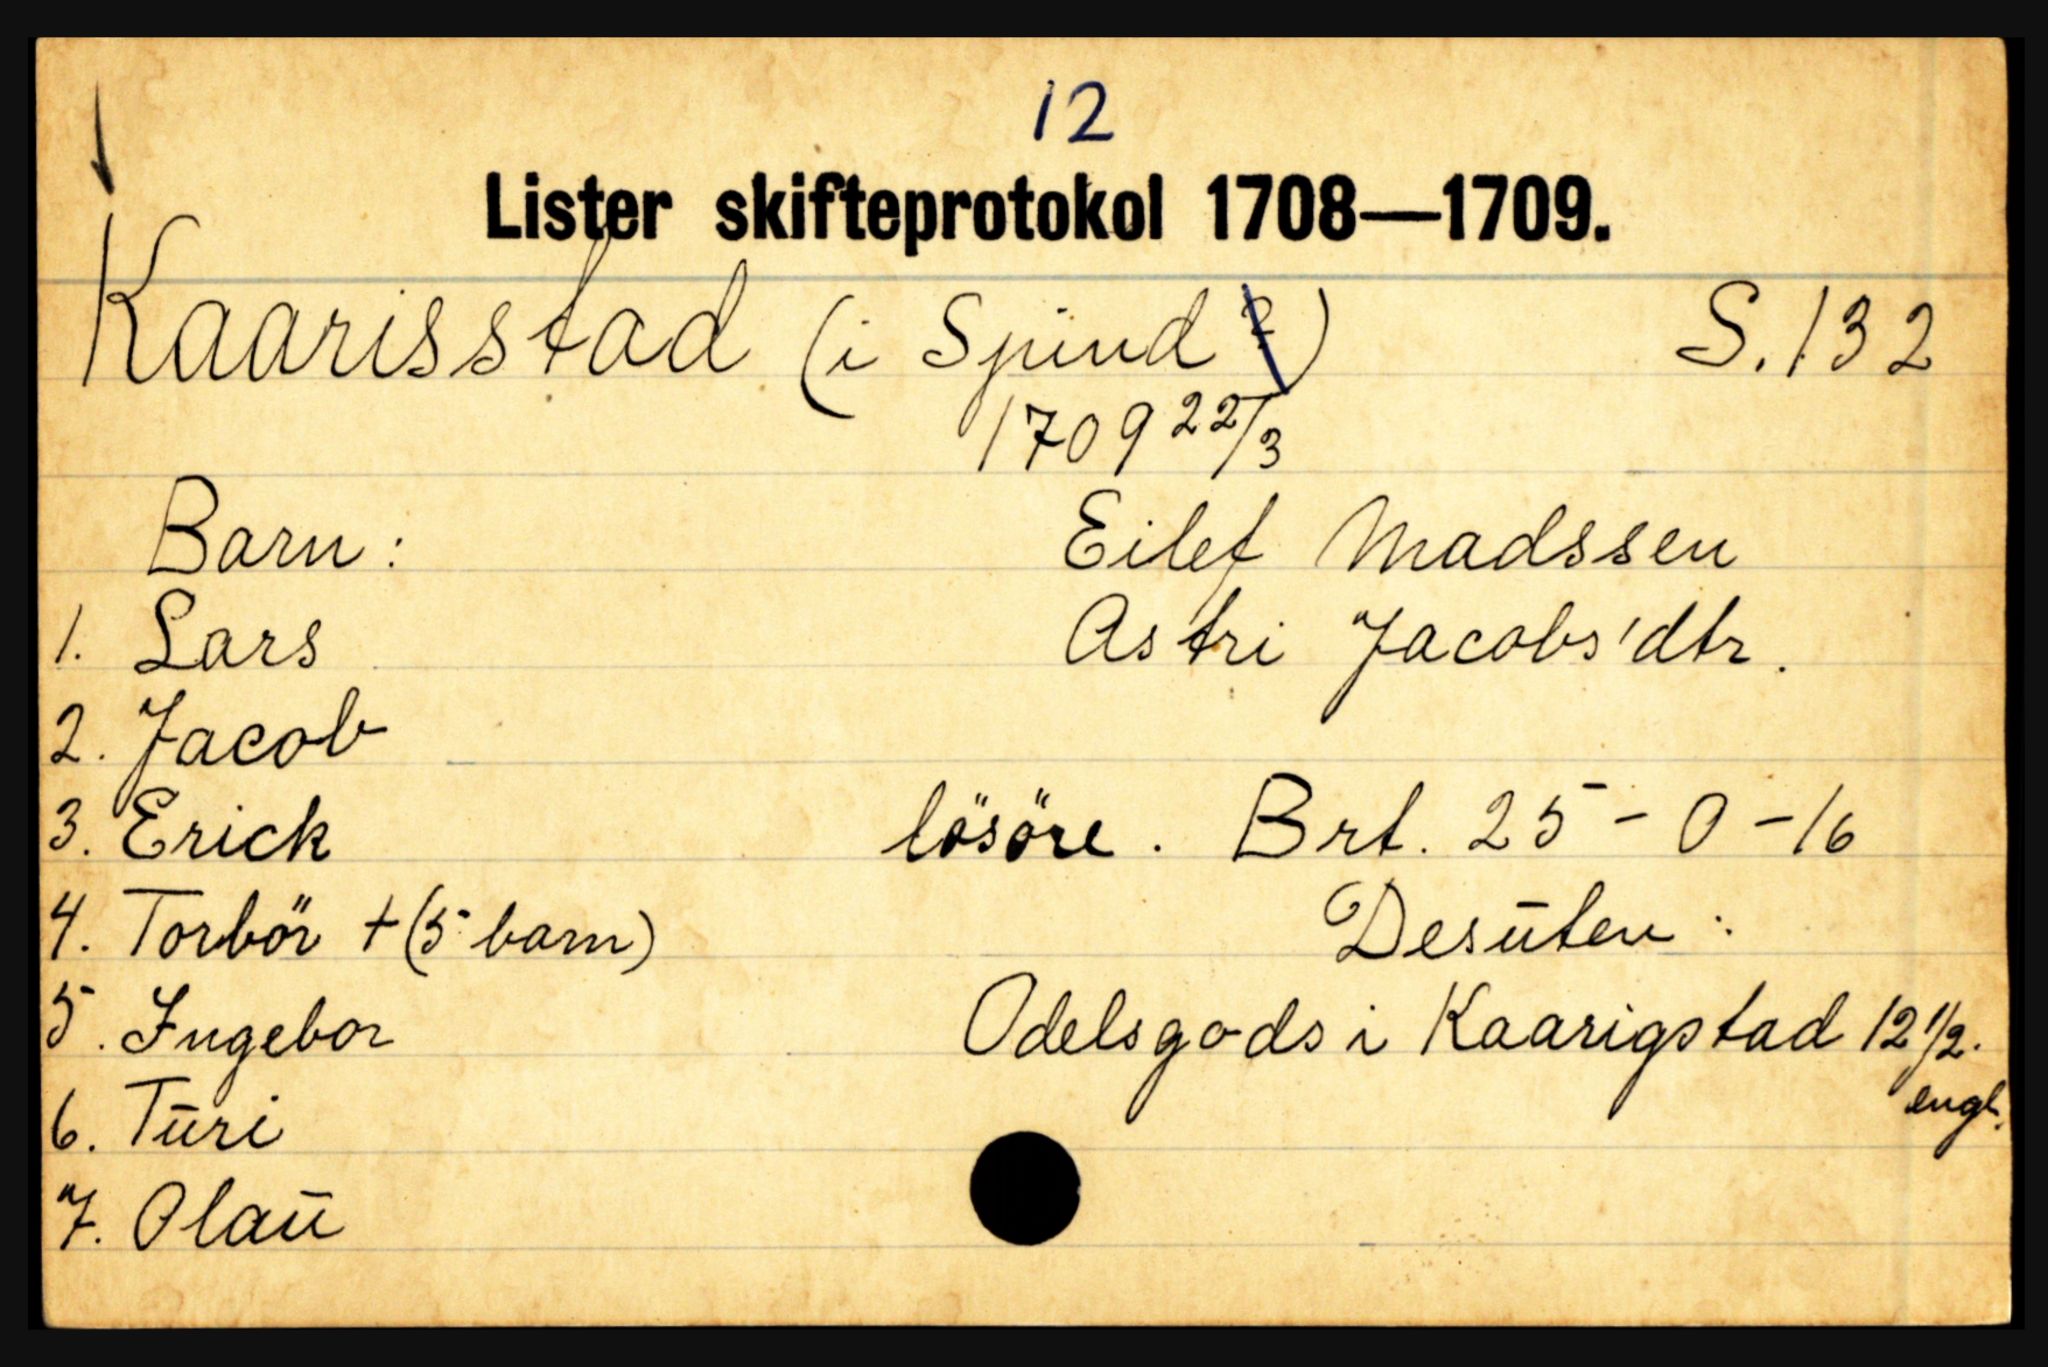 12
Lister skifteprotokol 1708—1709.
Kaarisstad (i Spind ?) S. 132
1709 22/3
Barn: Eilef Madssen
1. Lars Astri Jacobs'dtr.
2. Jacob
3. Erick lösöre. Brt. 25 - 0 - 16
4. Torbör + (5 barn) Desūten:
5. Ingebor Odelsgods i Kaarigstad 12 1/2.
engl.
6. Tūri
7. Olaū